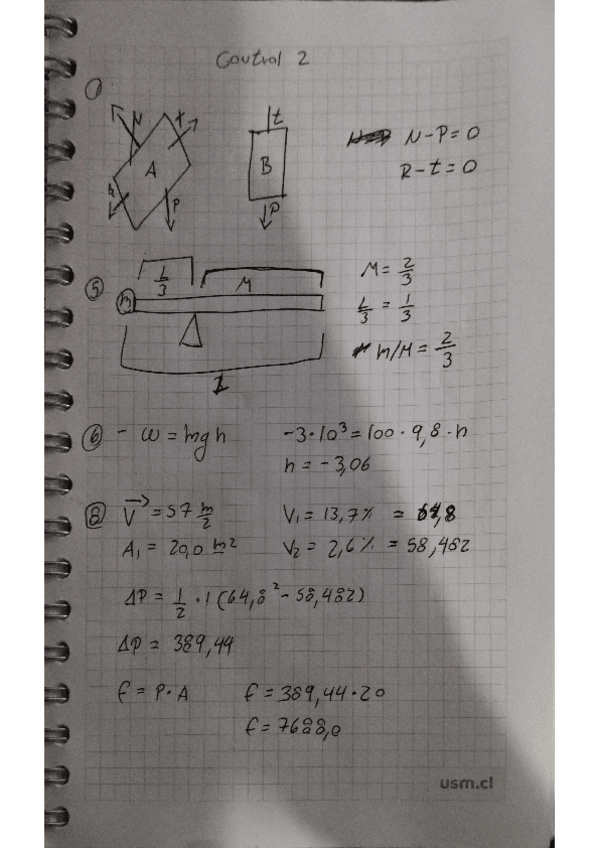 Control 2
①
N t
A
R P
t
B
P
N-P=0
R-t=0
⑤
L/3 M
m
1
M = 2/3
L/3 = 1/3
m/M = 2/3
⑥ - w = mgh -3·10³=100·9,8·h
h = -3,06
⑧ V = 57 m/2 V₁ = 13,7% = 64,8
A₁ = 20,0 m² V₂ = 2,6% = 58,482
ΔP = 1/2 · 1 (64,8² - 58,482)
ΔP = 389,44
f = P·A f = 389,44·20
f = 7688,0
usm.cl